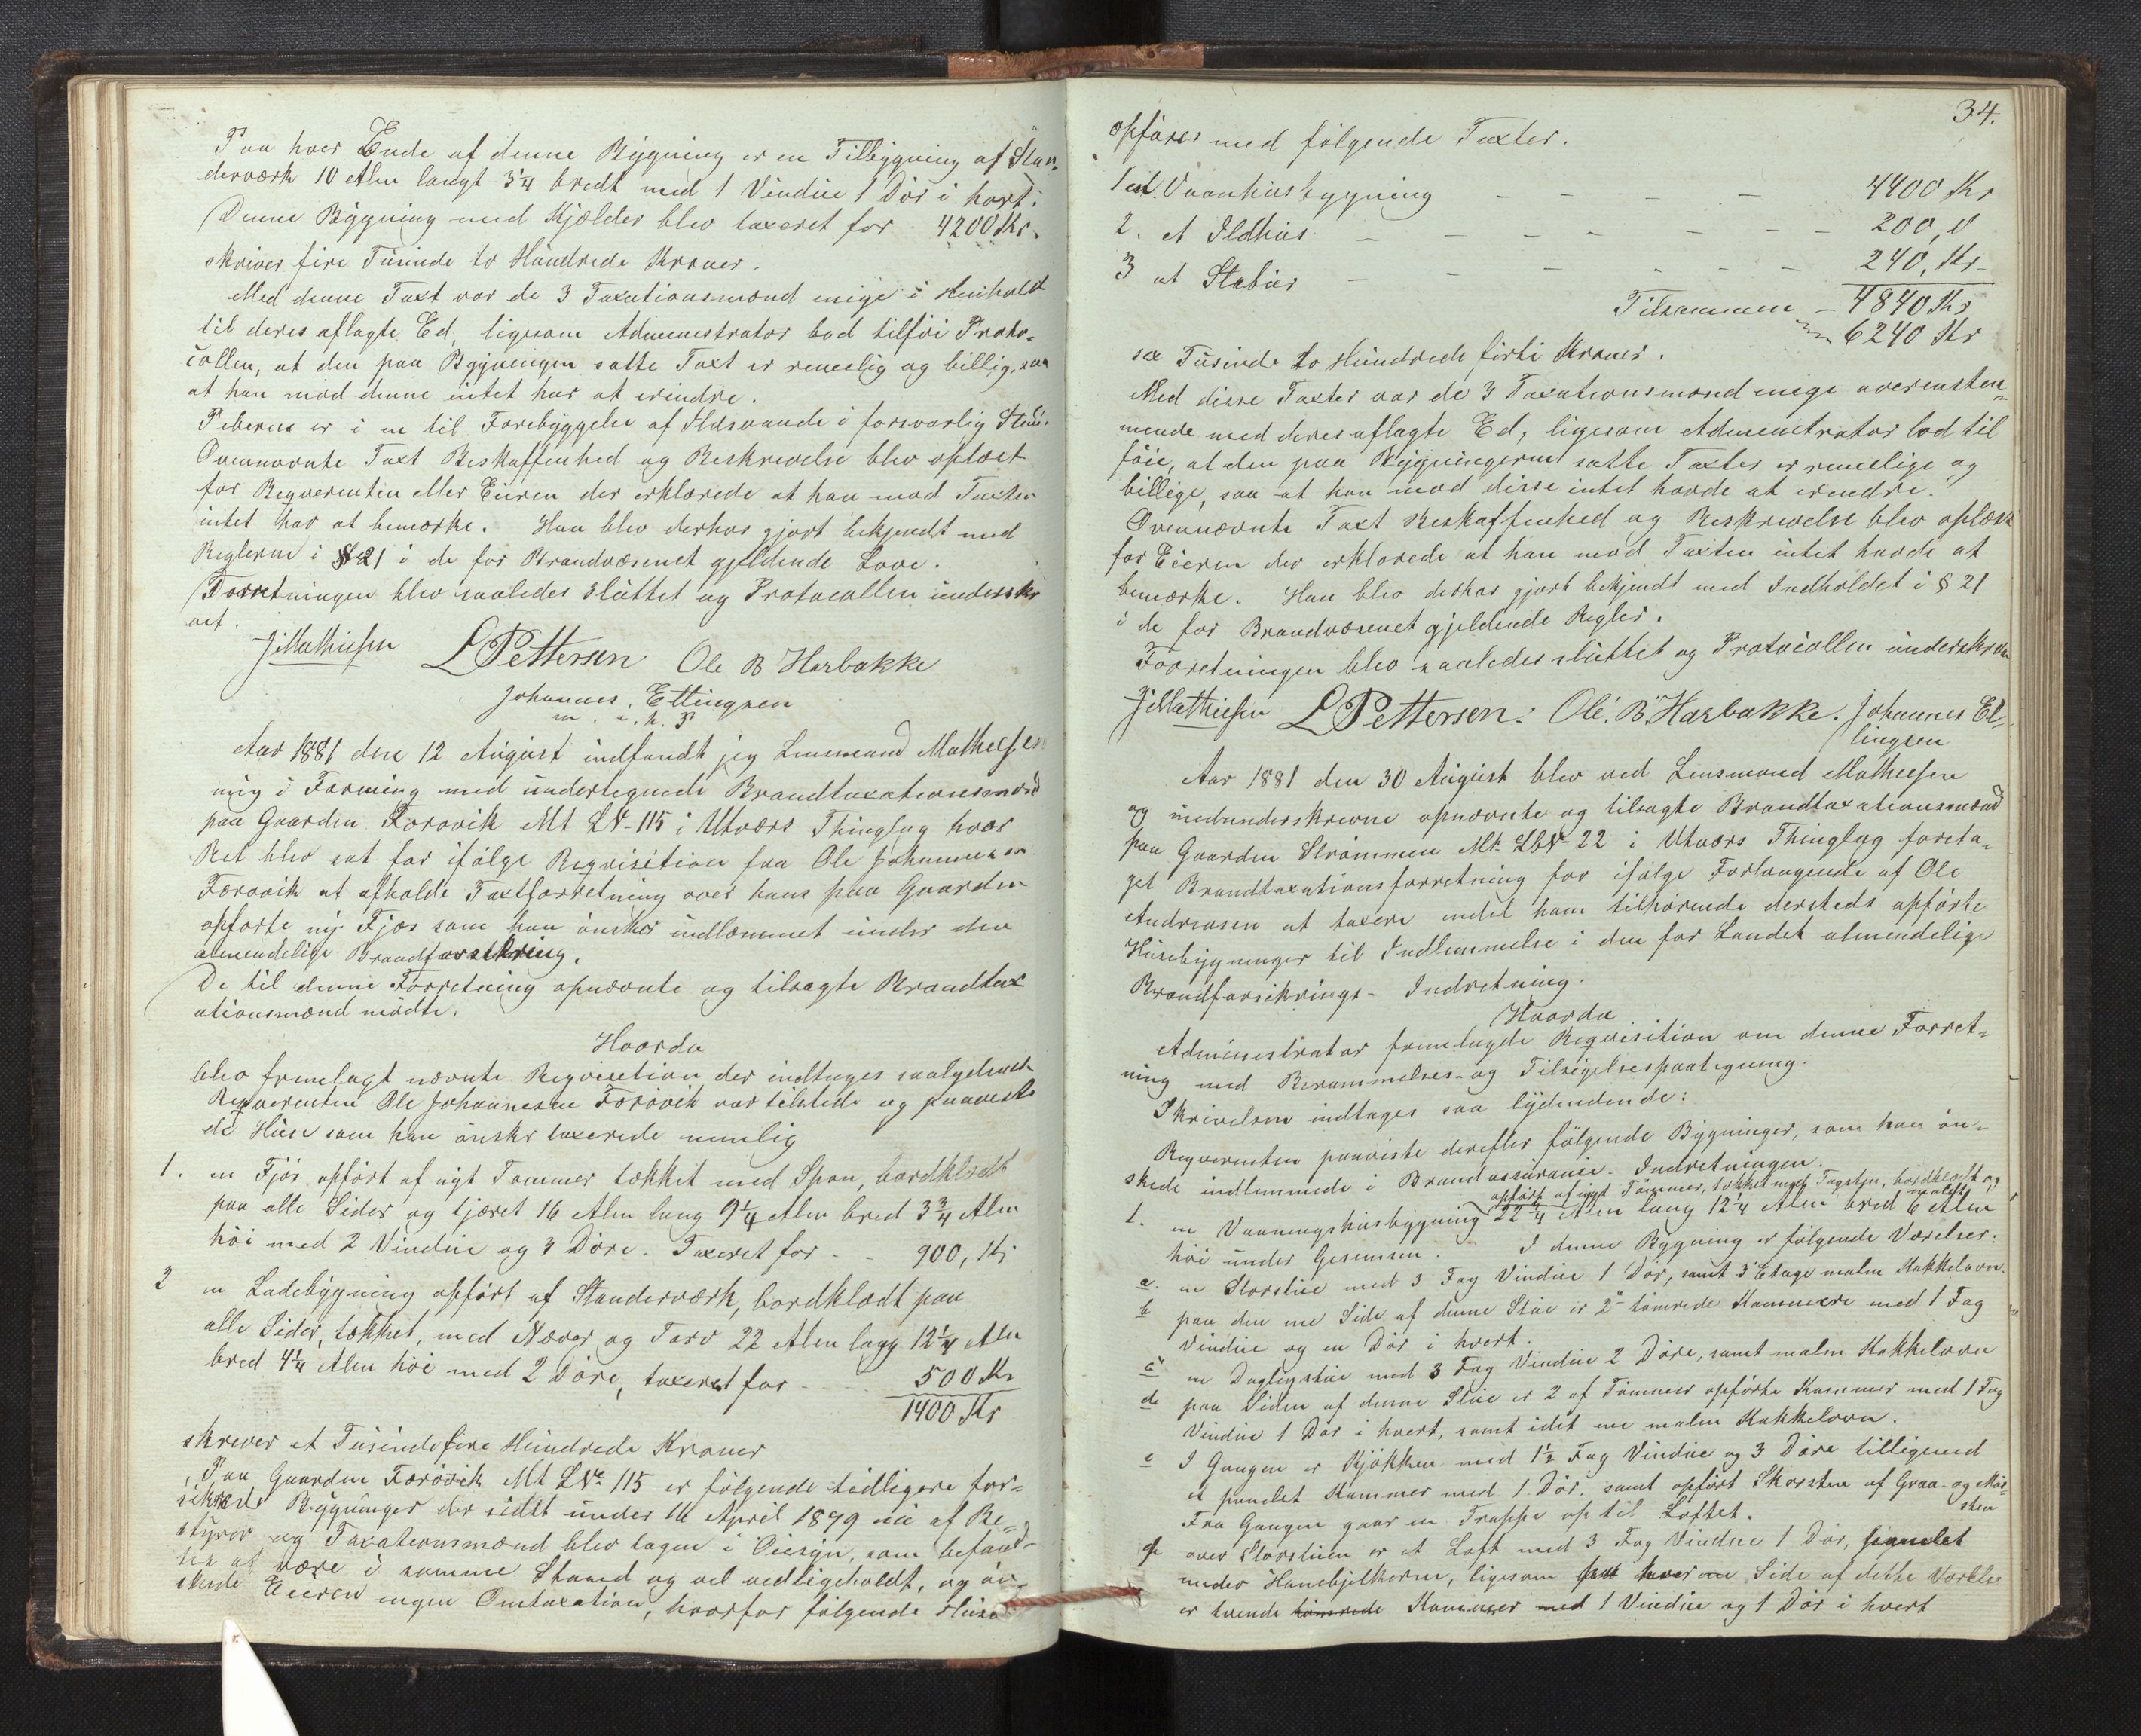 Paa hver Ende af denne Bygning er en Tilbygning af Stan-
derværk 10 Alen langt 3¼ bredt med 1 Vindue 1 Dör i hvert.
Denne Bygning med Kjælder blev taxeret for 4200 Kr.
skriver fire Tusinde to Hundrede Kroner.
Med denne Taxt var de 3 Taxationsmænd enige i Henhold
til deres aflagte Ed, ligesom Administrator lod tilföi Proto-
collen, at den paa Bygningen satte Taxt er rimelig og billig, saa
at han mod denne intet har at erindre.
Piberne er i en til Forebyggelse af Ildsvaade i forsvarlig Stand.
Ovennævnte Taxt Beskaffenhed og Beskrivelse blev oplæst
for Reqverenten eller Eieren der erklærede at han mod Taxten
intet har at bemærke. Han blev derhos gjort bekjendt med
Reglerne i § 21 i de for Brandvæsenet gjeldende Love.
Forretningen blev saaledes sluttet og Protocollen underskr
vet.
J. Mathiesen L Pettersen Ole B Harbakke
Johannes Ellingsen
m. i. h. P
Aar 1881 den 12 August indfandt jeg Lensmand Mathiesen
mig i Forening med undertegnede Brandtaxationsmænd
paa Gaarden Forövik Mt LN- 115 i Utværs Thinglag hvor
Ret blev sat for ifölge Reqvisition fra Ole Johannesen
Forövik at afholde Taxtforretning over hans paa Gaarden
opförte ny Fjös som han önsker indlemmet under den
almendelige Brandforsekring.
De til denne Forretning opnævnte og tilsagte Brandtax
ationsmænd mödte.
Hvorda
blev fremlagt nævnte Reqvisition der indtages saalydende
Reqverenten Ole Johannesen Forövik var tilstede og paaviste
de Huse som han önskr taxerede nemlig
1. en Fjös opfört af nyt Tömmer tækket med Spon, bordklædt
paa alle Sider og tjæret 16 Alen lang 9¼ Alen bred 3¾ Alen
höi med 2 Vindue og 3 Döre. Taxeret for - - 900, Kr
2 en Ladebygning opfört af Standerværk, bordklædt paa
alle Sider, tækket, med Næver og Torv 22 Alen lang 12¼ Alen
bred 4¼ Alen höi med 2 Döre, taxeret for - - 500 Kr
1400 Kr
skriver et Tusinde fire Hundrede Kroner
Paa Gaarden Forövik Mt LNe 115 er fölgende tidligere for-
sikrede Bygninger der sidst under 16 April 1879 af Be-
styrer og Taxationsmænd blev tagen i Öiesyn, som befand-
tes at være i samme Stand og vel vedligeholdt, og ön-
skede Eieren ingen Omtaxation, hvorfor fölgende Huse
34.
opföres med fölgende Taxter.
1 et. Vaanhusbygning - - - - 4400 Kr
2. et Ildhus - - - - - - - 200, "
3 et Stabur - - - - - - 240, Kr-
Tilsammen - 4840 Kr
6240 Kr
sex Tusinde to Hundrede förti Kroner.
Med disse Taxter var de 3 Taxationsmænd enige overensstem-
mende med deres aflagte Ed, ligesom Administrator lod til
föie, at den paa Bygningerne satte Taxter er rimelige og
billige, saa at han mod disse intet havde at erindre.
Ovennævnte Taxt Beskaffenhed og Beskrivelse blev oplæst
for Eieren der erklærede at han mod Taxten intet havde at
bemærke. Han blev derhos gjort bekjendt med Indholdet i § 21
i de for Brandvæsenet gjeldende Regler.
Forretningen blev saaledes sluttet og Protocollen underskreven
J Mathiesen L Pettersen: Ole. B. Harbakke. Johannes El-
lingsen
Aar 1881 den 30 August blev ved Lensmand Mathiesen
og medunderskrevne opnævnte og tilsagte Brandtaxationsmænd
paa Gaarden Strömmen Mt. LN- 22 i Utværs Thinglag foreta-
get Brandtaxationsforretning for ifölge Forlangende af Ole
Andreasen at taxere endel ham tilhörende dersteds opförte
Husebygninger til Indlemmelse i den for Landet almendelige
Brandforsikrings- Indretning.
Hvorda
Administrator fremlagde Reqvisition om denne Forret-
ning med Berammelses- og Tilsigelsespaategning.
Skrivelsen indtages saa lydendende:
Reqverenten paaviste derefter fölgende Bygninger, som han ön-
skede indlemmede i Brandassurance- Indretningen.
opfört af nyt Tömmer, tækket med Tagsten, bordklædt og
malet
1. en Vaaningshusbygning 22¼ Alen lang 12¼ Alen bred 6 Alen
höi under Gesemsen. I denne Bygning er fölgende Værelser:
a. en Storstue med 3 Fag Vindue 1 Dör, samt 3 Etage malm Kakkelovn.
b paa den ene Side af denne Stue er 2 tömrede Kammere med 1 Fag
Vindue og en Dör i hvert.
c en Dagligstue med 3 Fag Vindue 2 Döre, samt malm Kakkelovn
d paa Siden af denne Stue er 2 af Tömmer opförte Kammer med 1 Fag
Vindue 1 Dör i hvert, samt idet ene malm Kakkelovn.
e I Gangen er Kjökken med 1½ Fag Vindue og 3 Döre tilligemed
et panelet Kammer med 1 Dör, samt opfört Skorsten af Graa- og Mur-
sten
Fra Gangen gaar en Trappe op til Loftet.
f over Storstuen er et Loft med 3 Fag Vindue 1 Dör, panelet
under Hanebjelkerne, ligesom paa hver Side af dette Værelse
er tvende tömrede Kammer med 1 Vindue og 1 Dör i hvert